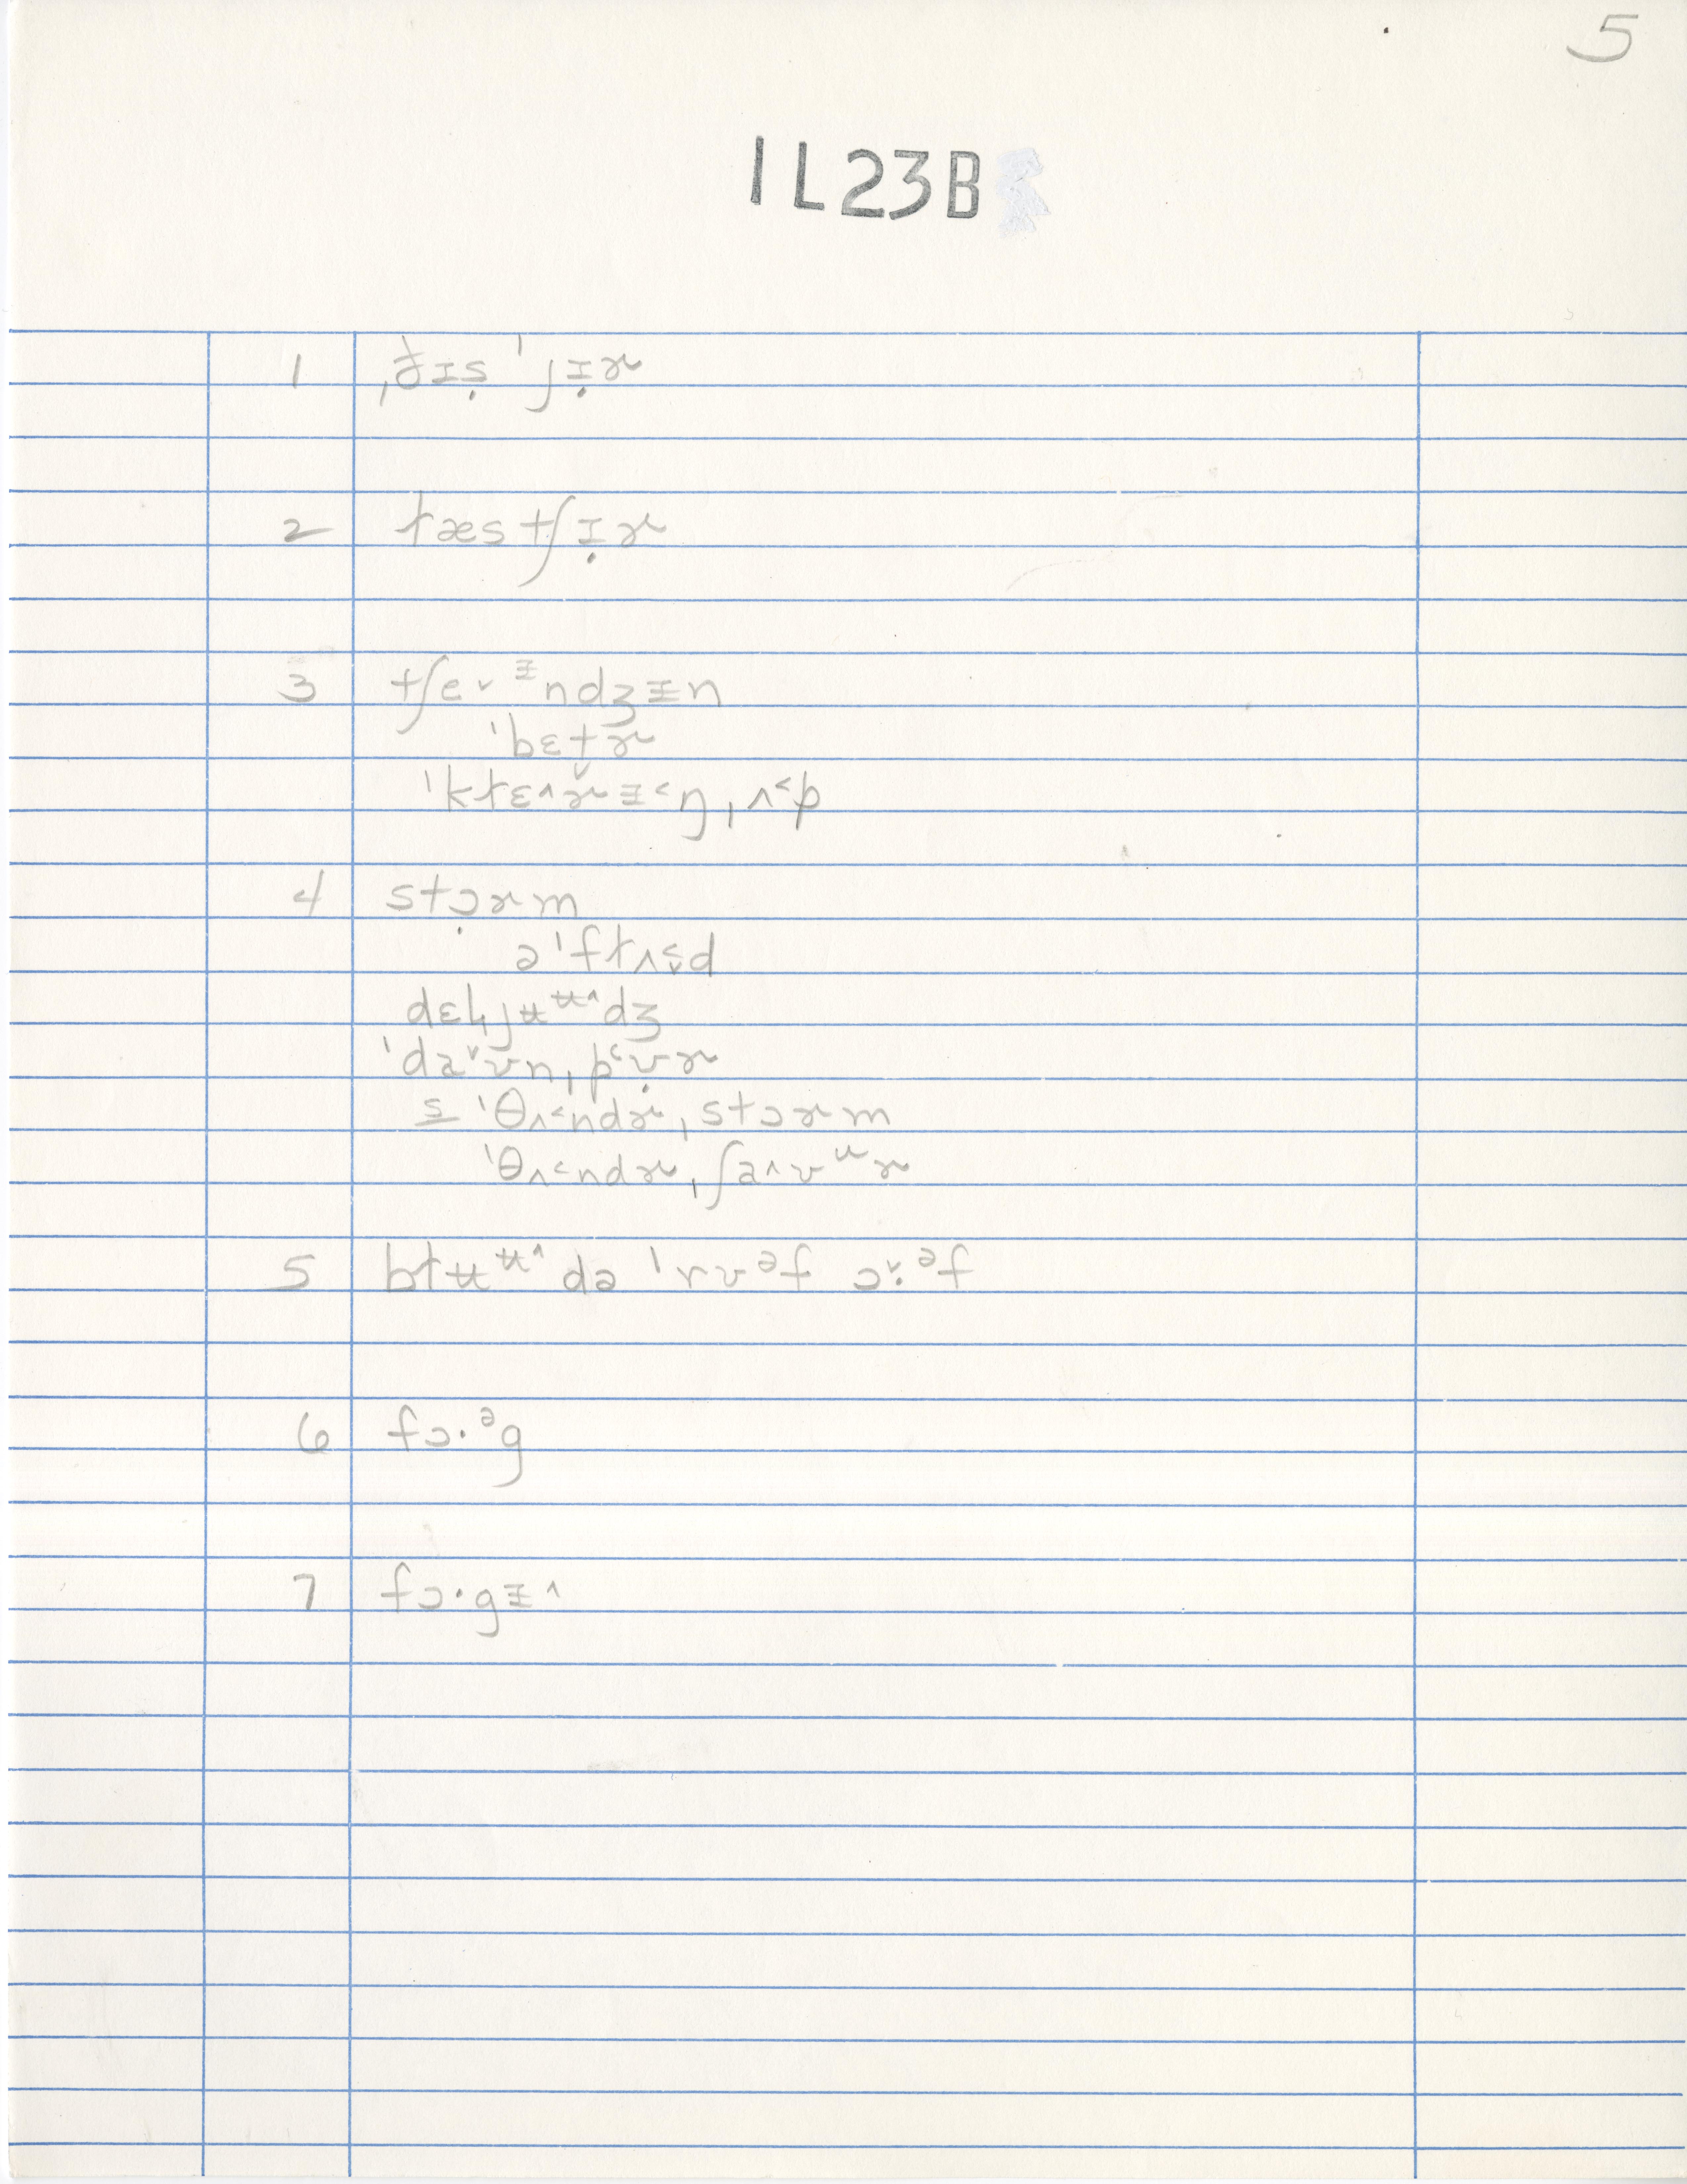 5
IL23B
1 ˌðɪṣ ˈjɪ̣ɚ
2 ɫæstʃɪ̣ɚ
3 tʃe˅ᵻndʒᵻn
ˈbɛt̬ɚ
ˈkɫɛ˄ɚᵻ˂ŋˌʌ˂p
4 stɔ̣ɚm
əˈfɫʌ˂˅d
dɛl̩jʉᵾ˄dʒ
ˈda˅ʊnˌp˂ʊ̣ɚ
s̲ ˈθʌ˂ndɚˌstɔɚm
ˈθʌ˂ndɚˌʃa˄ʊᵘɚ
5 bɫʉᵾ˄ də ˈrʊᵊf ɔ˅·ᵊf
6 fɔ·ᵊg
7 fɔ·gᵻ˄